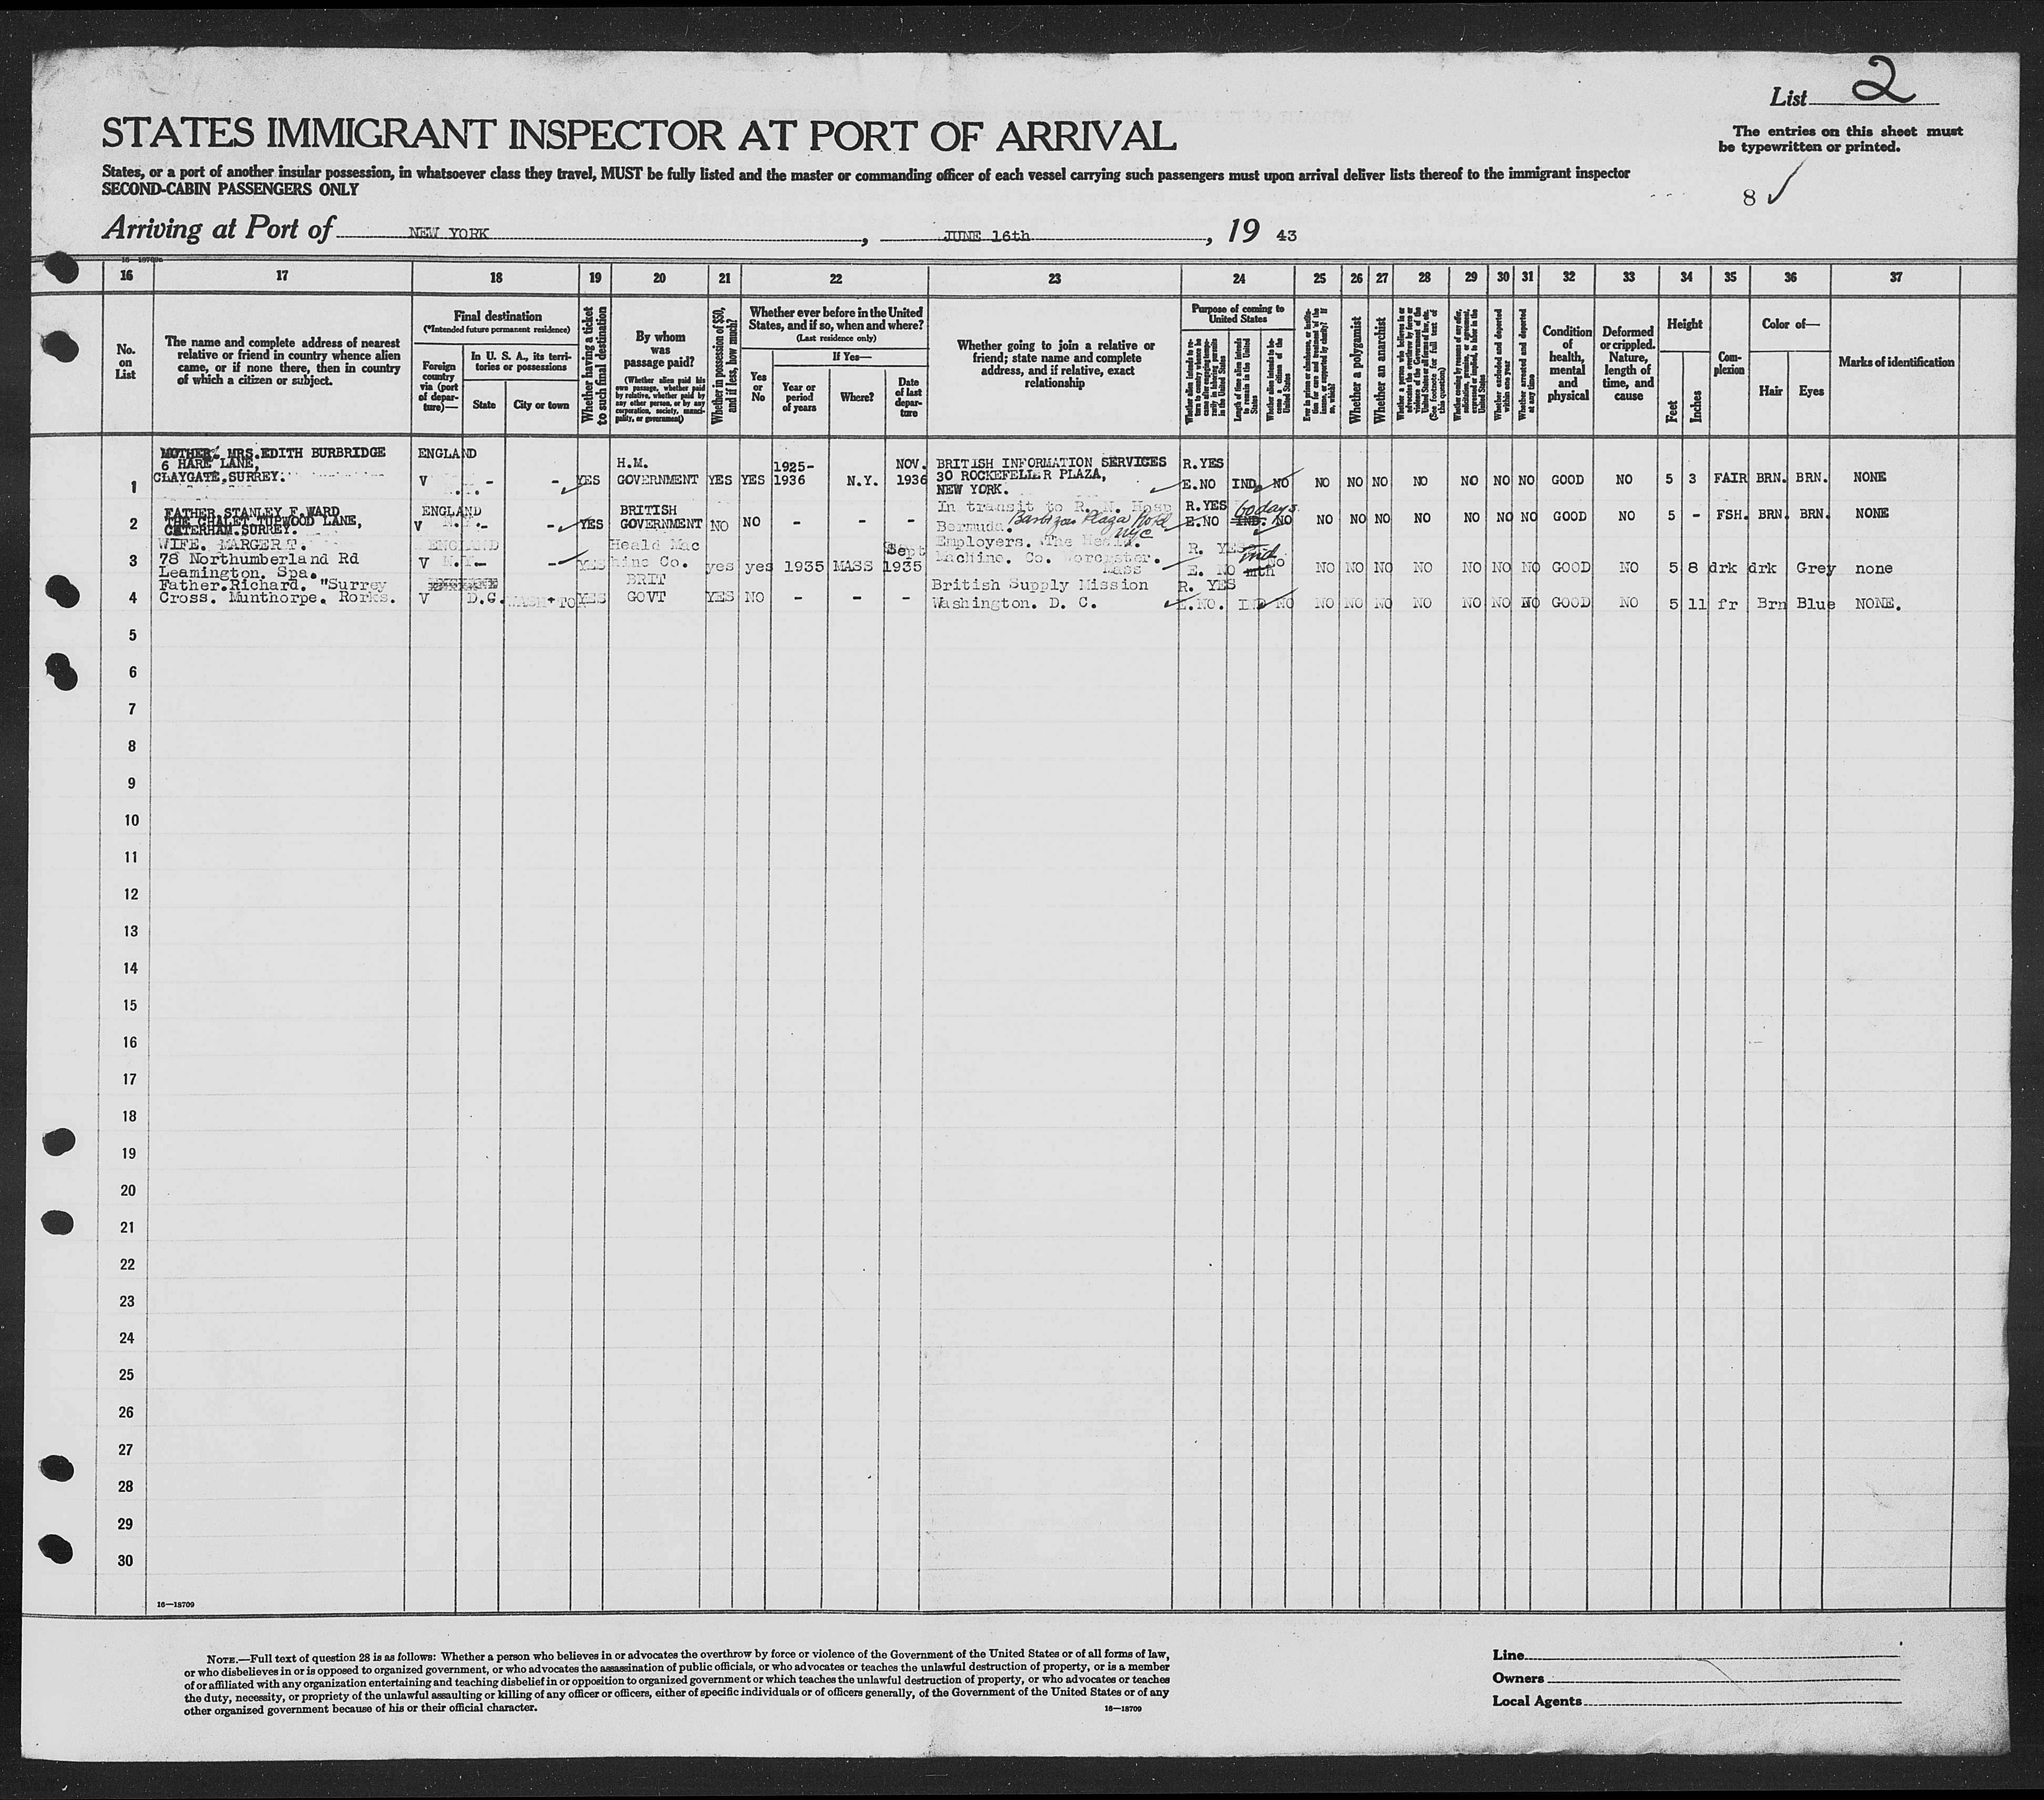 List 2
STATES IMMIGRANT INSPECTOR AT PORT OF ARRIVAL
The entries on this sheet must
be typewritten or printed.
States, or a port of another insular possession, in whatsoever class they travel, MUST be fully listed and the master or commanding officer of each vessel carrying such passengers must upon arrival deliver lists thereof to the immigrant inspector
SECOND-CABIN PASSENGERS ONLY
8 ✓
Arriving at Port of NEW YORK, JUNE 16th, 19 43
16 17 18 19 20 21 22 23 24 25 26 27 28 29 30 31 32 33 34 35 36 37
No. on List
The name and complete address of nearest relative or friend in country whence alien came, or if none there, then in country of which a citizen or subject.
Final destination
(*Intended future permanent residence)
Foreign country via (port of departure)—
In U. S. A., its territories or possessions
State
City or town
Whether having a ticket to such final destination
By whom was passage paid?
(Whether alien paid his own passage, whether paid by relative, whether paid by any other person, or by any corporation, society, municipality, or government)
Whether in possession of $50, and if less, how much?
Whether ever before in the United States, and if so, when and where?
(Last residence only)
Yes or No
If Yes—
Year or period of years
Where?
Date of last departure
Whether going to join a relative or friend; state name and complete address, and if relative, exact relationship
Purpose of coming to United States
Length of time alien intends to remain in the United States
Whether alien intends to become a citizen of the United States
Whether a polygamist
Whether an anarchist
Whether excluded and deported within one year
Whether arrested and deported at any time
Condition of health, mental and physical
Deformed or crippled. Nature, length of time, and cause
Height
Feet
Inches
Complexion
Color of—
Hair
Eyes
Marks of identification
MOTHER. MRS.EDITH BURBRIDGE ENGLAND
6 HARE LANE, H.M. 1925- NOV. BRITISH INFORMATION SERVICES R.YES
1 CLAYGATE,SURREY. V - - YES GOVERNMENT YES YES 1936 N.Y. 1936 30 ROCKEFELLER PLAZA, E.NO IND. NO NO NO NO NO NO NO NO GOOD NO 5 3 FAIR BRN. BRN. NONE
NEW YORK.
FATHER STANLEY F.WARD ENGLAND BRITISH In transit to R. N. Hosp R.YES 60 days
2 THE CHALET TUPWOOD LANE, V - - YES GOVERNMENT NO NO - - - Bermuda. Barbizon Plaza Hotel NYC E.NO IND. NO NO NO NO NO NO NO NO GOOD NO 5 - FSH. BRN. BRN. NONE
CATERHAM.SURREY.
WIFE. MARGERT. ENGLAND Heald Mac Sept Employers. The Heald. R. YES Ind
3 78 Northumberland Rd V N.Y.- - YES hine Co. yes yes 1935 MASS 1935 Machine. Co. Worcester. Mass E. NO mth No NO NO NO NO NO NO NO GOOD NO 5 8 drk drk Grey none
Leamington. Spa.
Father.Richard. "Surrey ENGLAND BRIT British Supply Mission R. YES
4 Cross. Munthorpe. Rorks. V D.C. WASH-TO YES GOVT YES NO - - - Washington. D. C. E.NO. IND NO NO NO NO NO NO NO NO GOOD NO 5 11 fr Brn Blue NONE.
5
6
7
8
9
10
11
12
13
14
15
16
17
18
19
20
21
22
23
24
25
26
27
28
29
30
16—18709
NOTE.—Full text of question 28 is as follows: Whether a person who believes in or advocates the overthrow by force or violence of the Government of the United States or of all forms of law,
or who disbelieves in or is opposed to organized government, or who advocates the assassination of public officials, or who advocates or teaches the unlawful destruction of property, or is a member
of or affiliated with any organization entertaining and teaching disbelief in or opposition to organized government or which teaches the unlawful destruction of property, or who advocates or teaches
the duty, necessity, or propriety of the unlawful assaulting or killing of any officer or officers, either of specific individuals or of officers generally, of the Government of the United States or of any
other organized government because of his or their official character.
16—18709
Line
Owners
Local Agents